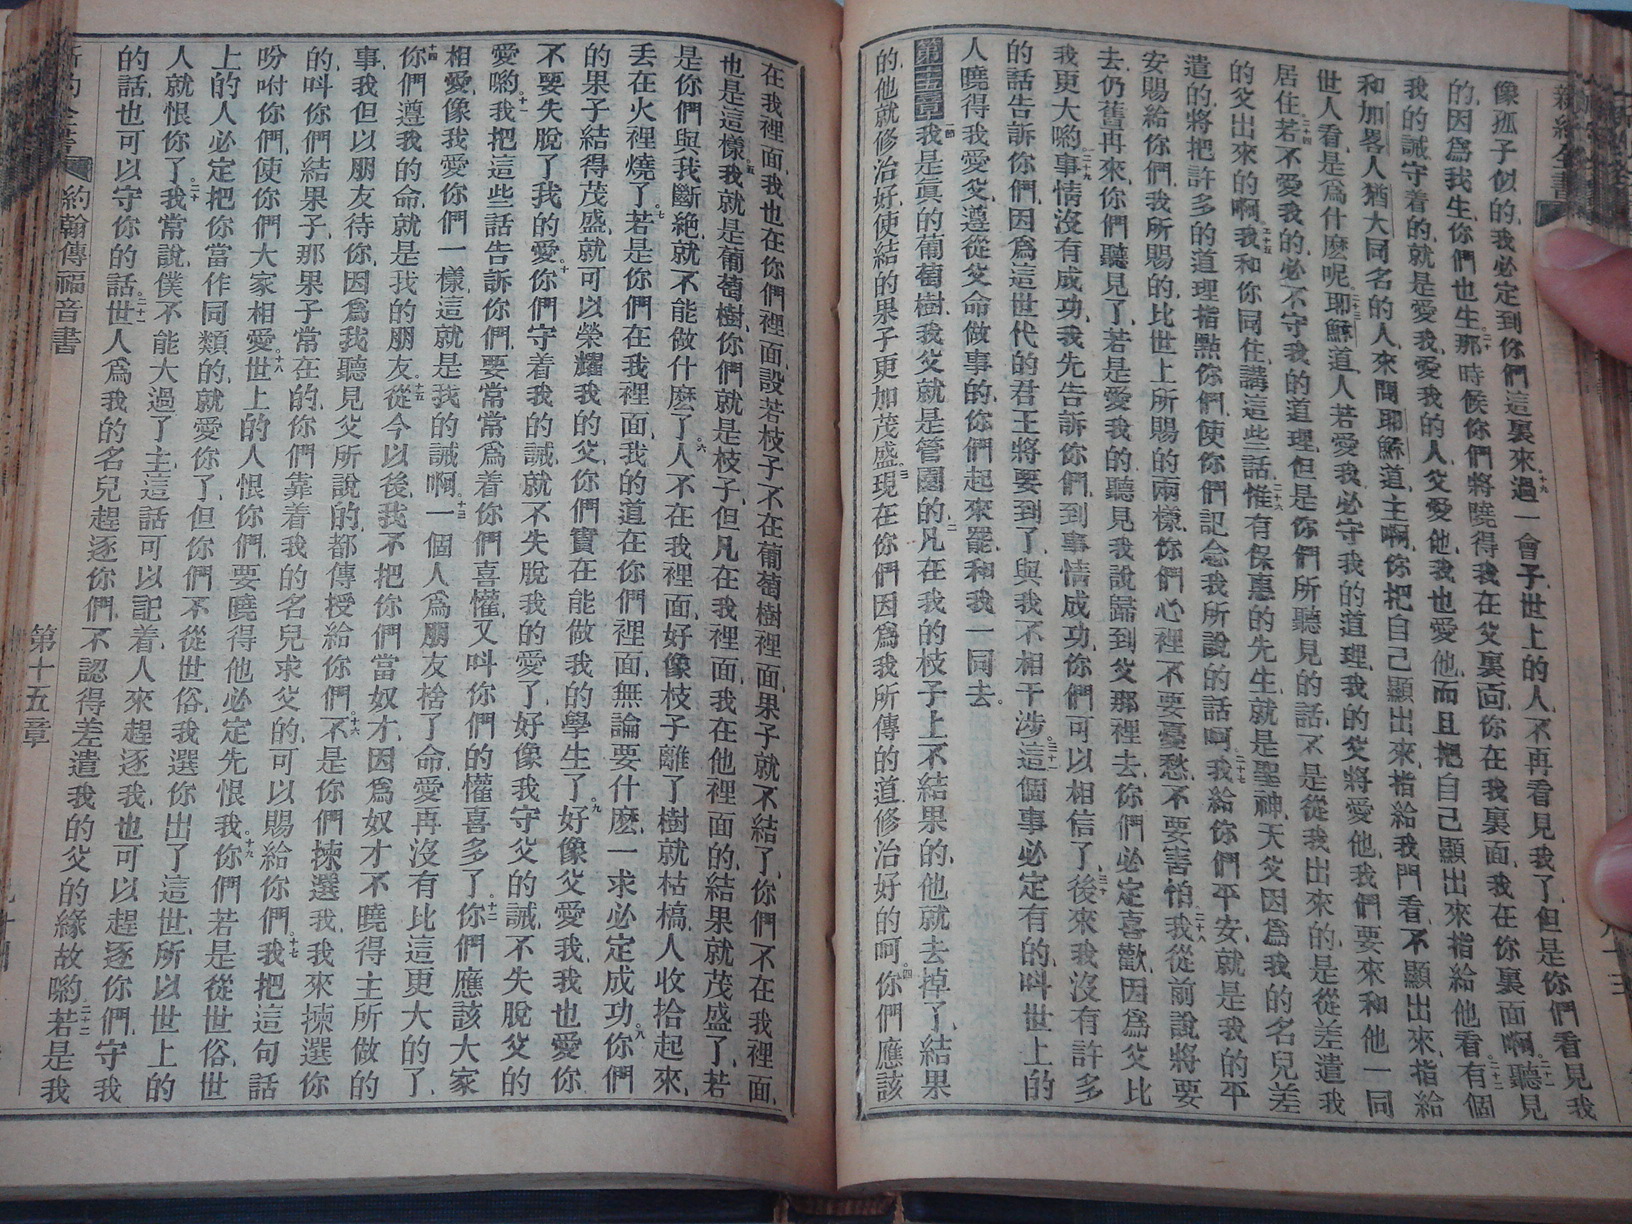 新約全書
像孤子似的、我必定到你們這裏來、十九過一會子、世上的人、不再看見我了、但是你們看見我
的、因爲我生、你們也生、二十那時候你們將曉得我在父裏面、你在我裏面、我在你裏面啊、二十一聽見
我的誡守着的、就是愛我、愛我的人、父愛他、我也愛他、而且把自己顯出來指給他看、二十二有個
和加畧人猶大同名的人、來問耶穌道、主啊、你把自己顯出來、指給我門看、不顯出來、指給
世人看、是爲什麽呢、二十三耶穌道、人若愛我、必守我的道理、我的父將愛他、我們要來和他一同
居住、二十四若不愛我的、必不守我的道理、但是你們所聽見的話、不是從我出來的、是從差遣我
的父出來的啊、二十五我和你同住、講這些話、二十六惟有保惠的先生、就是聖神、天父因爲我的名兒差
遣的、將把許多的道理指點你們、使你們記念我所說的話呵、二十七我給你們平安、就是我的平
安、賜給你們、我所賜的、比世上所賜的兩樣、你們心裡不要憂愁、不要害怕、二十八我從前說將要
去、仍舊再來、你們聽見了、若是愛我的、聽見我說歸到父那裡去、你們必定喜歡、因爲父比
我更大喲、二十九事情沒有成功、我先告訴你們、到事情成功、你們可以相信了、三十後來我沒有許多
的話告訴你們、因爲這世代的君王將要到了、與我不相干涉、三十一這個事必定有的、叫世上的
人曉得我愛父、遵從父命做事的、你們起來罷、和我一同去。
第十五章 一節我是眞的葡萄樹、我父就是管園的、二凡在我的枝子上不結果的、他就去掉了、結果
的、他就修治好、使結的果子更加茂盛、三現在你們因爲我所傳的道、修治好的呵、四你們應該
在我裡面、我也在你們裡面、設若枝子不在葡萄樹裡面、果子就不結了、你們不在我裡面、
也是這樣、五我就是葡萄樹、你們就是枝子、但凡在我裡面、我在他裡面的、結果就茂盛了、若
是你們與我斷絶、就不能做什麽了、六人不在我裡面、好像枝子離了樹就枯槁、人收拾起來、
丢在火裡燒了、七若是你們在我裡面、我的道在你們裡面、無論要什麽、一求必定成功、八你們
的果子結得茂盛、就可以榮耀我的父、你們實在能做我的學生了、九好像父愛我、我也愛你、
不要失脫了我的愛、十你們守着我的誡、就不失脫我的愛了、好像我守父的誡、不失脫父的
愛喲、十一我把這些話告訴你們、要常常爲着你們喜懽、又叫你們的懽喜多了、十二你們應該大家
相愛、像我愛你們一樣、這就是我的誡啊、十三一個人爲朋友捨了命、愛再沒有比這更大的了、
十四你們遵我的命、就是我的朋友、十五從今以後、我不把你們當奴才、因爲奴才不曉得主所做的
事、我但以朋友待你、因爲我聽見父所說的、都傳授給你們、十六不是你們揀選我、我來揀選你
的、叫你們結果子、那果子常在的、你們靠着我的名兒求父的、可以賜給你們、十七我把這句話
吩咐你們、使你們大家相愛、十八世上的人恨你們、要曉得他必定先恨我、十九你們若是從世俗、世
上的人必定把你當作同類的、就愛你了、但你們不從世俗、我選你出了這世、所以世上的
人就恨你了、二十我常說、僕不能大過了主、這話可以記着、人來趕逐我、也可以趕逐你們、守我
的話、也可以守你的話、二十一世人爲我的名兒趕逐你們、不認得差遣我的父的緣故喲、二十二若是我
新約全書 約翰傳福音書 第十五章